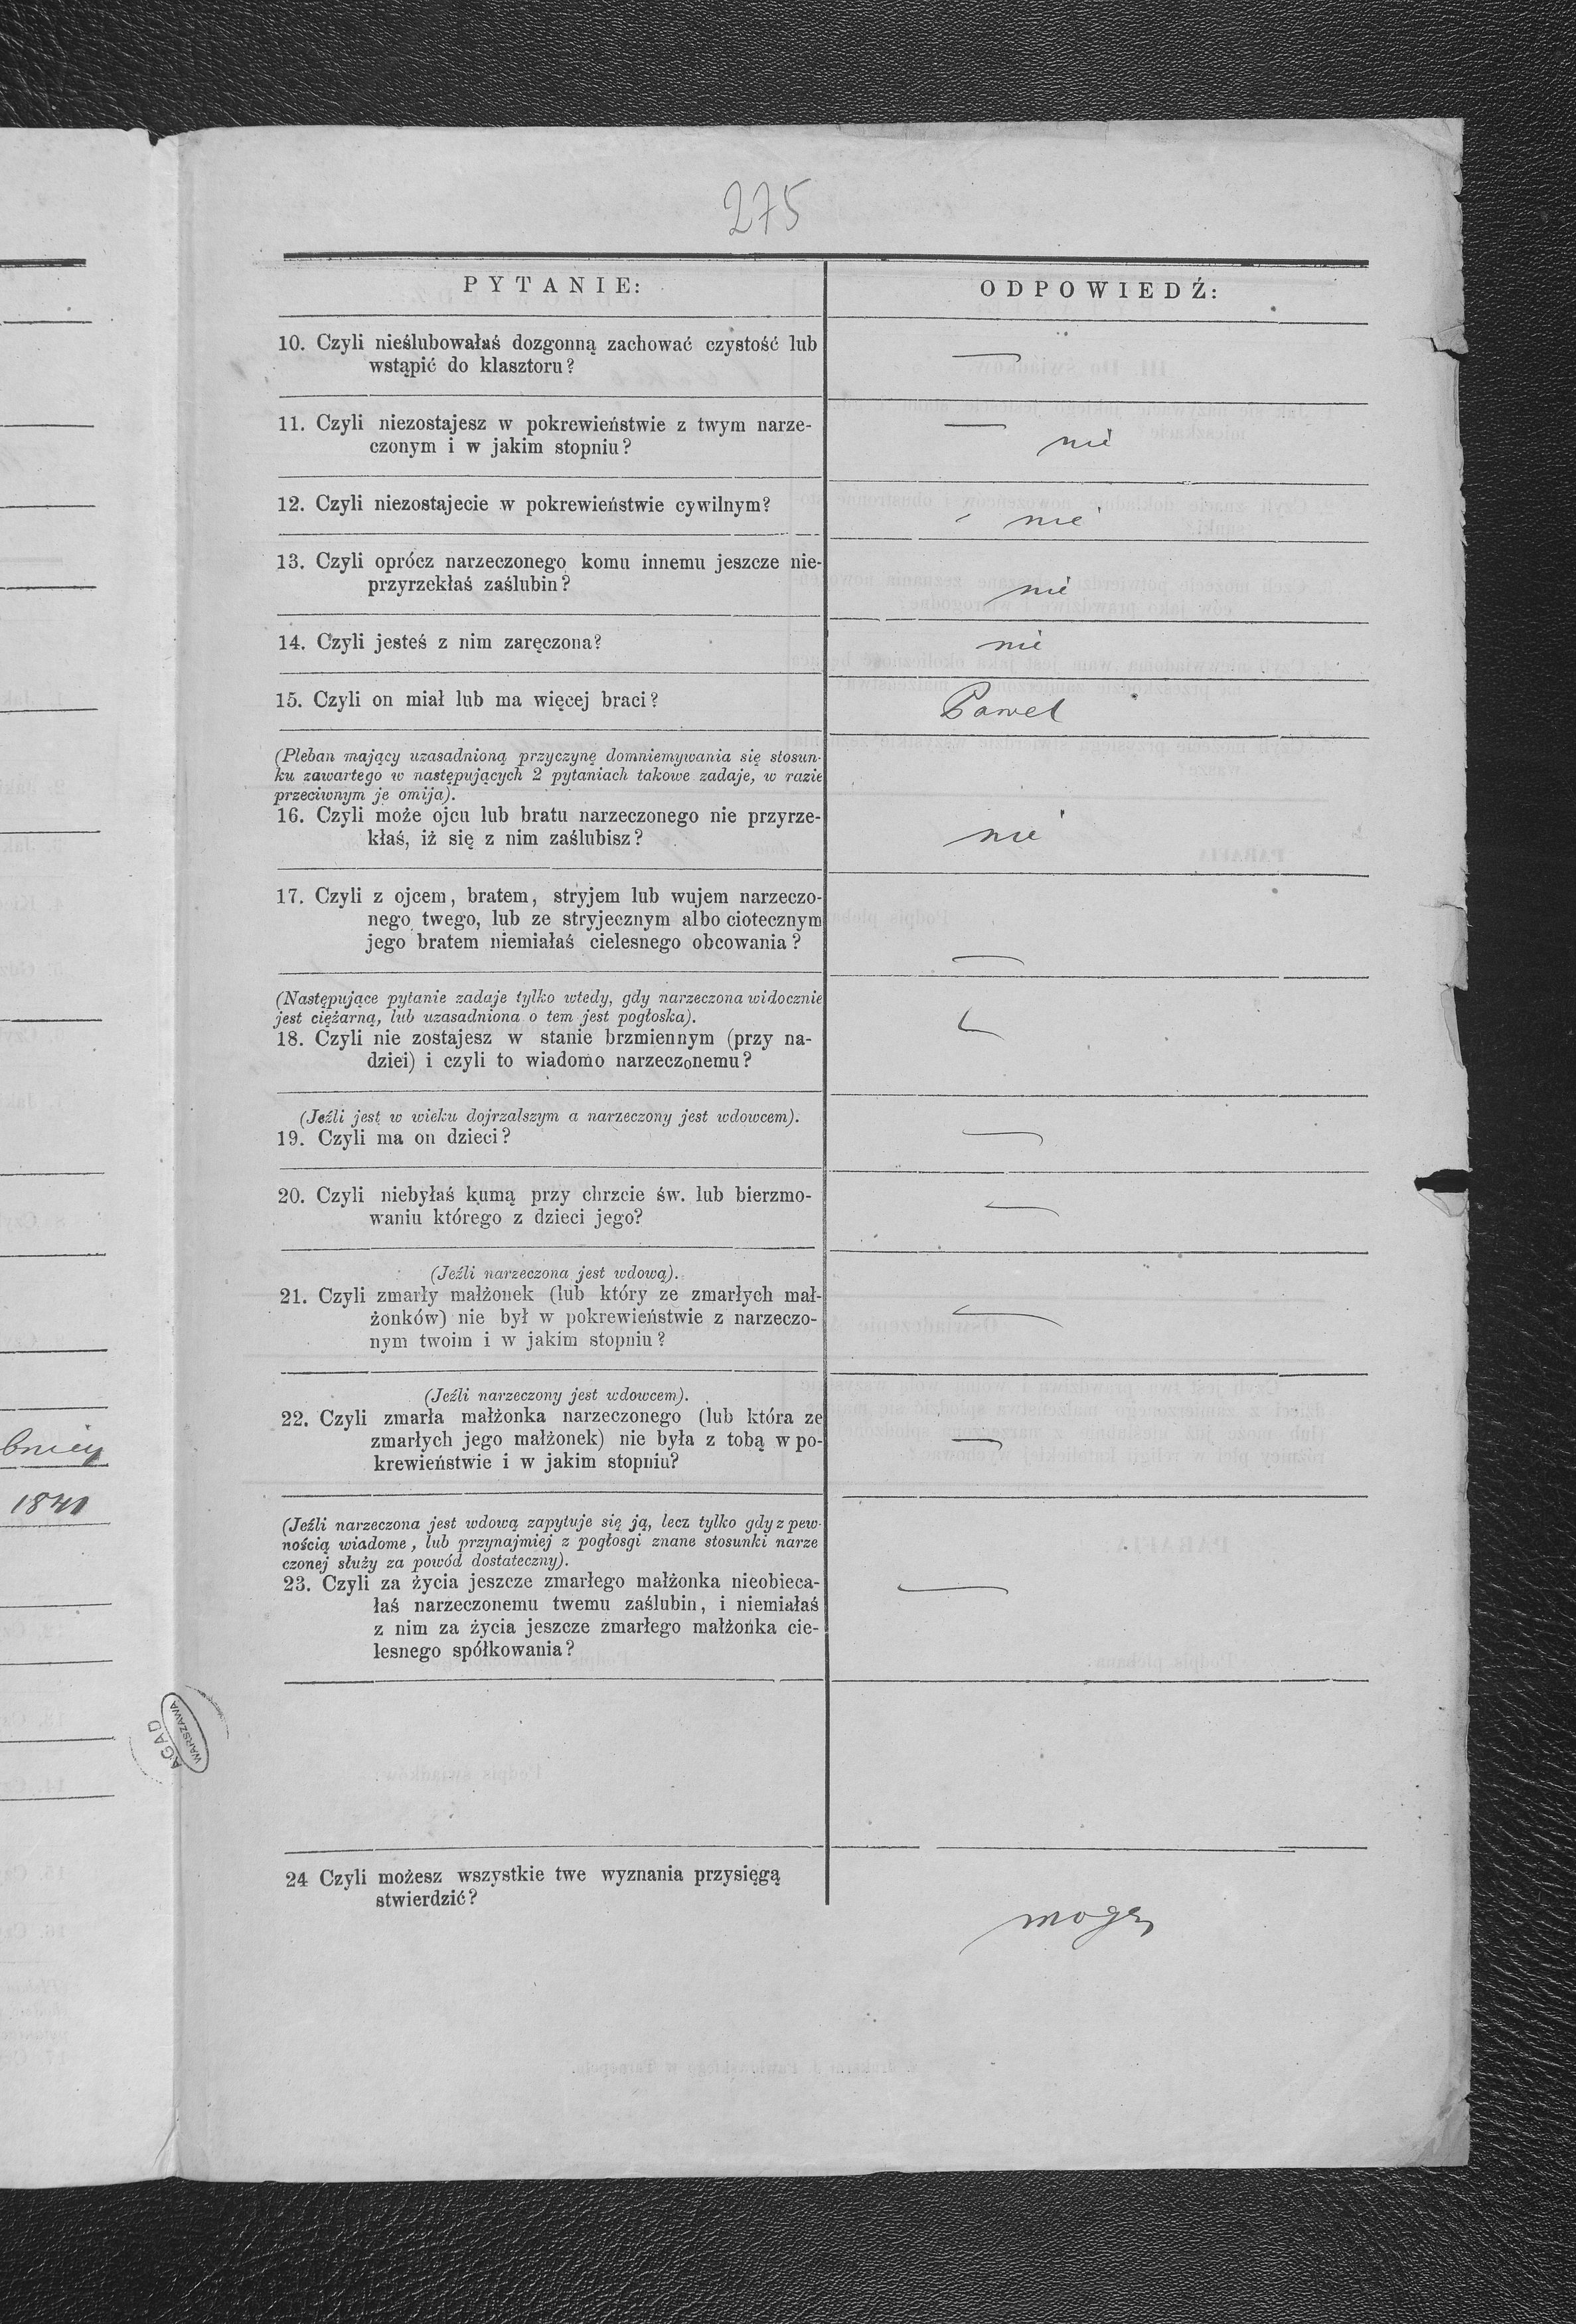 275
PYTANIE:
ODPOWIEDŹ:
10. Czyli nieślubowałaś dozgonną zachować czystość lub
wstąpić do klasztoru?
—
11. Czyli niezostajesz w pokrewieństwie z twym narze-
czonym i w jakim stopniu?
— nie
12. Czyli niezostajecie w pokrewieństwie cywilnym?
nie
13. Czyli oprócz narzeczonego komu innemu jeszcze nie-
przyrzekłaś zaślubin?
nie
14. Czyli jesteś z nim zaręczona?
nie
15. Czyli on miał lub ma więcej braci?
Paweł
(Pleban mający uzasadnioną przyczynę domniemywania się stosun-
ku zawartego w następujących 2 pytaniach takowe zadaje, w razie
przeciwnym je omija).
16. Czyli może ojcu lub bratu narzeczonego nie przyrze-
kłaś, iż się z nim zaślubisz?
nie
17. Czyli z ojcem, bratem, stryjem lub wujem narzeczo-
nego twego, lub ze stryjecznym albo ciotecznym
jego bratem niemiałaś cielesnego obcowania?
—
(Następujące pytanie zadaje tylko wtedy, gdy narzeczona widocznie
jest ciężarną, lub uzasadniona o tem jest pogłoska).
18. Czyli nie zostajesz w stanie brzmiennym (przy na-
dziei) i czyli to wiadomo narzeczonemu?
—
(Jeźli jest w wieku dojrzalszym a narzeczony jest wdowcem).
19. Czyli ma on dzieci?
—
20. Czyli niebyłaś kumą przy chrzcie św. lub bierzmo-
waniu którego z dzieci jego?
—
(Jeźli narzeczona jest wdową).
21. Czyli zmarły małżonek (lub który ze zmarłych mał-
żonków) nie był w pokrewieństwie z narzeczo-
nym twoim i w jakim stopniu?
—
(Jeźli narzeczony jest wdowcem).
22. Czyli zmarła małżonka narzeczonego (lub która ze
zmarłych jego małżonek) nie była z tobą w po-
krewieństwie i w jakim stopniu?
—
(Jeźli narzeczona jest wdową zapytuje się ją, lecz tylko gdy z pew-
nością wiadome, lub przynajmiej z pogłosgi znane stosunki narze
czonej służy za powód dostateczny).
23. Czyli za życia jeszcze zmarłego małżonka nieobieca-
łaś narzeczonemu twemu zaślubin, i niemiałaś
z nim za życia jeszcze zmarłego małżonka cie-
lesnego spółkowania?
—
24 Czyli możesz wszystkie twe wyznania przysięgą
stwierdzić?
mogę
AGAD
WARSZAWA